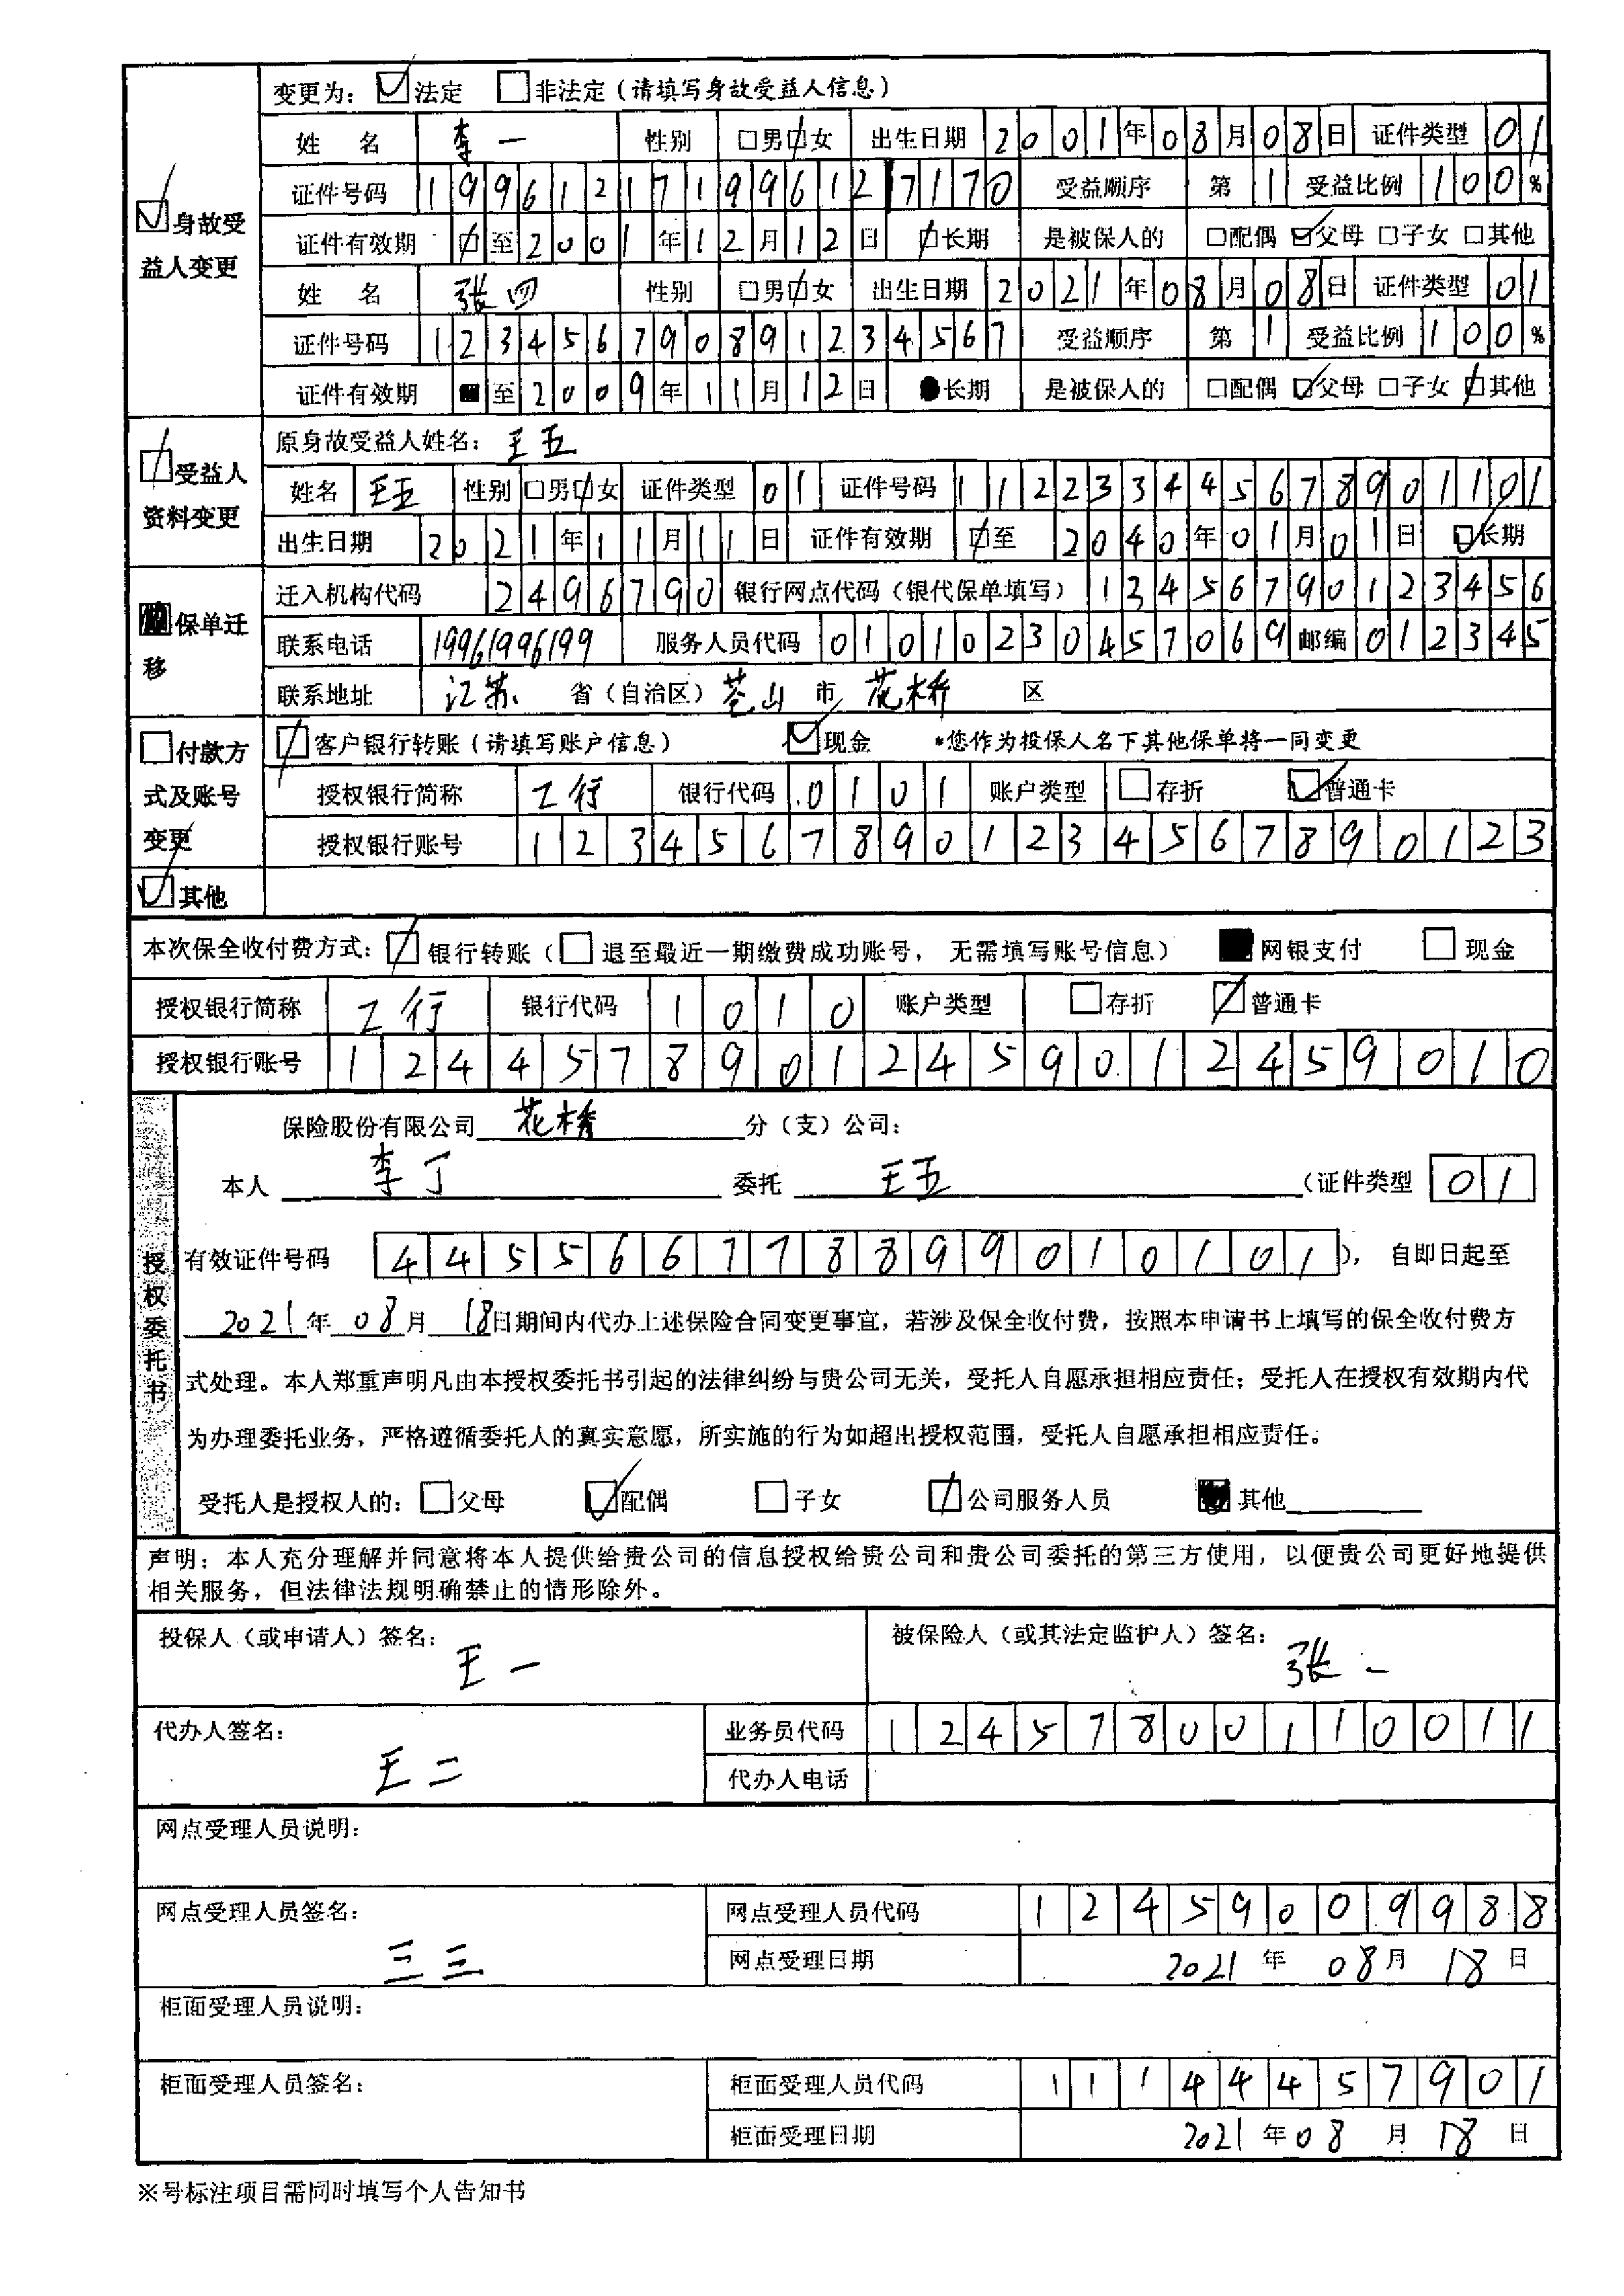 变更为： ☑法定 □非法定（请填写身故受益人信息）
姓 名 李一 性别 □男☑女 出生日期 2001年08月08日 证件类型 01
☑身故受益人变更
证件号码 199612171996127170 受益顺序 第1 受益比例 100%
证件有效期 ☑至2001年12月12日 ☑长期 是被保人的 □配偶 ☑父母 □子女 □其他
姓 名 张四 性别 □男☑女 出生日期 2021年08月08日 证件类型 01
证件号码 123456790891234567 受益顺序 第1 受益比例 100%
证件有效期 ■至2009年11月12日 ●长期 是被保人的 □配偶 ☑父母 □子女 ☑其他
☑受益人资料变更
原身故受益人姓名：王五
姓名 王五 性别 □男☑女 证件类型 01 证件号码 112233445678901101
出生日期 2021年11月11日 证件有效期 ☑至 2040年01月01日 ☑长期
■保单迁移
迁入机构代码 2496790 银行网点代码（银代保单填写） 13456790123456
联系电话 19961996199 服务人员代码 01010230457069 邮编 012345
联系地址 江苏 省（自治区） 苍山 市 花桥 区
□付款方式及账号变更
☑客户银行转账（请填写账户信息） ☑现金 *您作为投保人名下其他保单将一同变更
授权银行简称 工行 银行代码 0101 账户类型 □存折 ☑普通卡
授权银行账号 12345678901234567890123
☑其他
本次保全收付费方式：☑银行转账（□退至最近一期缴费成功账号，无需填写账号信息） ■网银支付 □现金
授权银行简称 工行 银行代码 1010 账户类型 □存折 ☑普通卡
授权银行账号 12445789012459012459010
授权委托书
保险股份有限公司 花桥 分（支）公司：
本人 李丁 委托 王五 （证件类型 01
有效证件号码 445566778899010101 ），自即日起至
2021年08月18日期间内代办上述保险合同变更事宜，若涉及保全收付费，按照本申请书上填写的保全收付费方
式处理。本人郑重声明凡由本授权委托书引起的法律纠纷与贵公司无关，受托人自愿承担相应责任；受托人在授权有效期内代
为办理委托业务，严格遵循委托人的真实意愿，所实施的行为如超出授权范围，受托人自愿承担相应责任。
受托人是授权人的：□父母 ☑配偶 □子女 ☑公司服务人员 ■其他
声明：本人充分理解并同意将本人提供给贵公司的信息授权给贵公司和贵公司委托的第三方使用，以便贵公司更好地提供
相关服务，但法律法规明确禁止的情形除外。
投保人（或申请人）签名： 王一 被保险人（或其法定监护人）签名： 张一
代办人签名： 王二 业务员代码 12457800110011
代办人电话
网点受理人员说明：
网点受理人员签名： 三三 网点受理人员代码 12459009988
网点受理日期 2021年08月18日
柜面受理人员说明：
柜面受理人员签名： 柜面受理人员代码 11144457901
柜面受理日期 2021年08月18日
※号标注项目需同时填写个人告知书